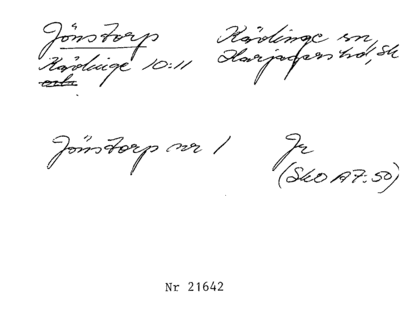 Jönstorp
Kävlinge sn,
Kävlinge 10:11
Harjagers hd, Sk
Jönstorp nr 1
Jr
(SkO A7:50)
Nr 21642